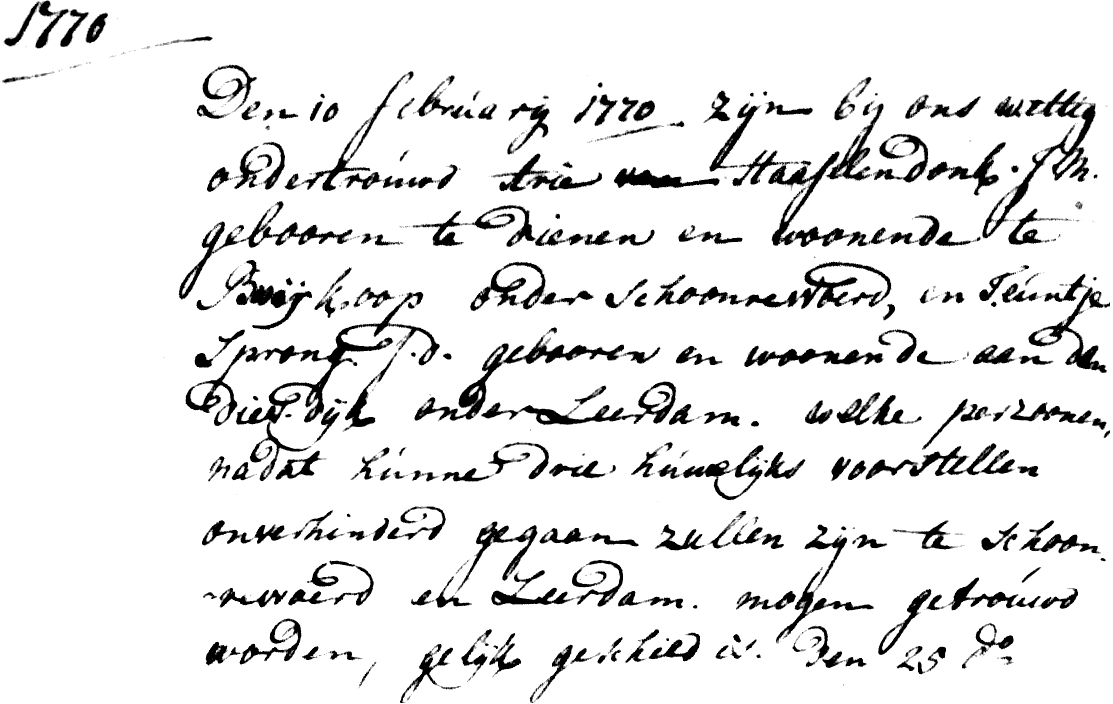 1770
Den 10 februarij 1770 zijn bij ons wettig
ondertrouwd Arie van Haafllendonk. J M.
gebooren te Dienen en woonende te
Bwijkoop onder Schoonrewoerd, en Teuntje
Sprong. J. d. gebooren en woonende aan den
Dief-dijk onder Leerdam. welke perzoonen,
nadat hunne drie huwelijks voorstellen
onverhinderd gegaan zullen zijn te Schoon-
-rewoerd en Leerdam. mogen getrouwd
worden, gelijk geschied is. Den 25 do